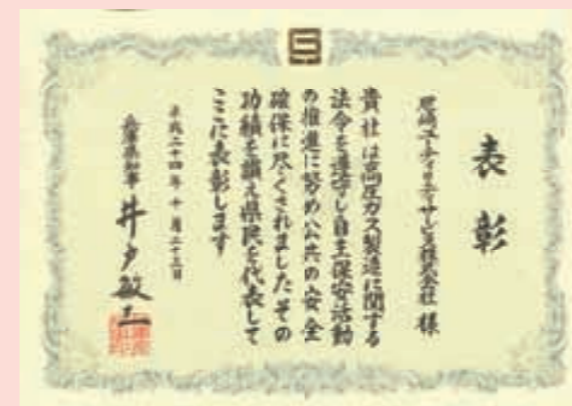 表彰
尼崎ユーティリティサービス株式会社 様
貴社は高圧ガス製造に関する
法令を遵守し自主保安活動
の推進に努め公共の安全
確保に尽くされましたその
功績を讃え県民を代表して
ここに表彰します
平成二十四年十月二十三日
兵庫県知事 井戸敏三